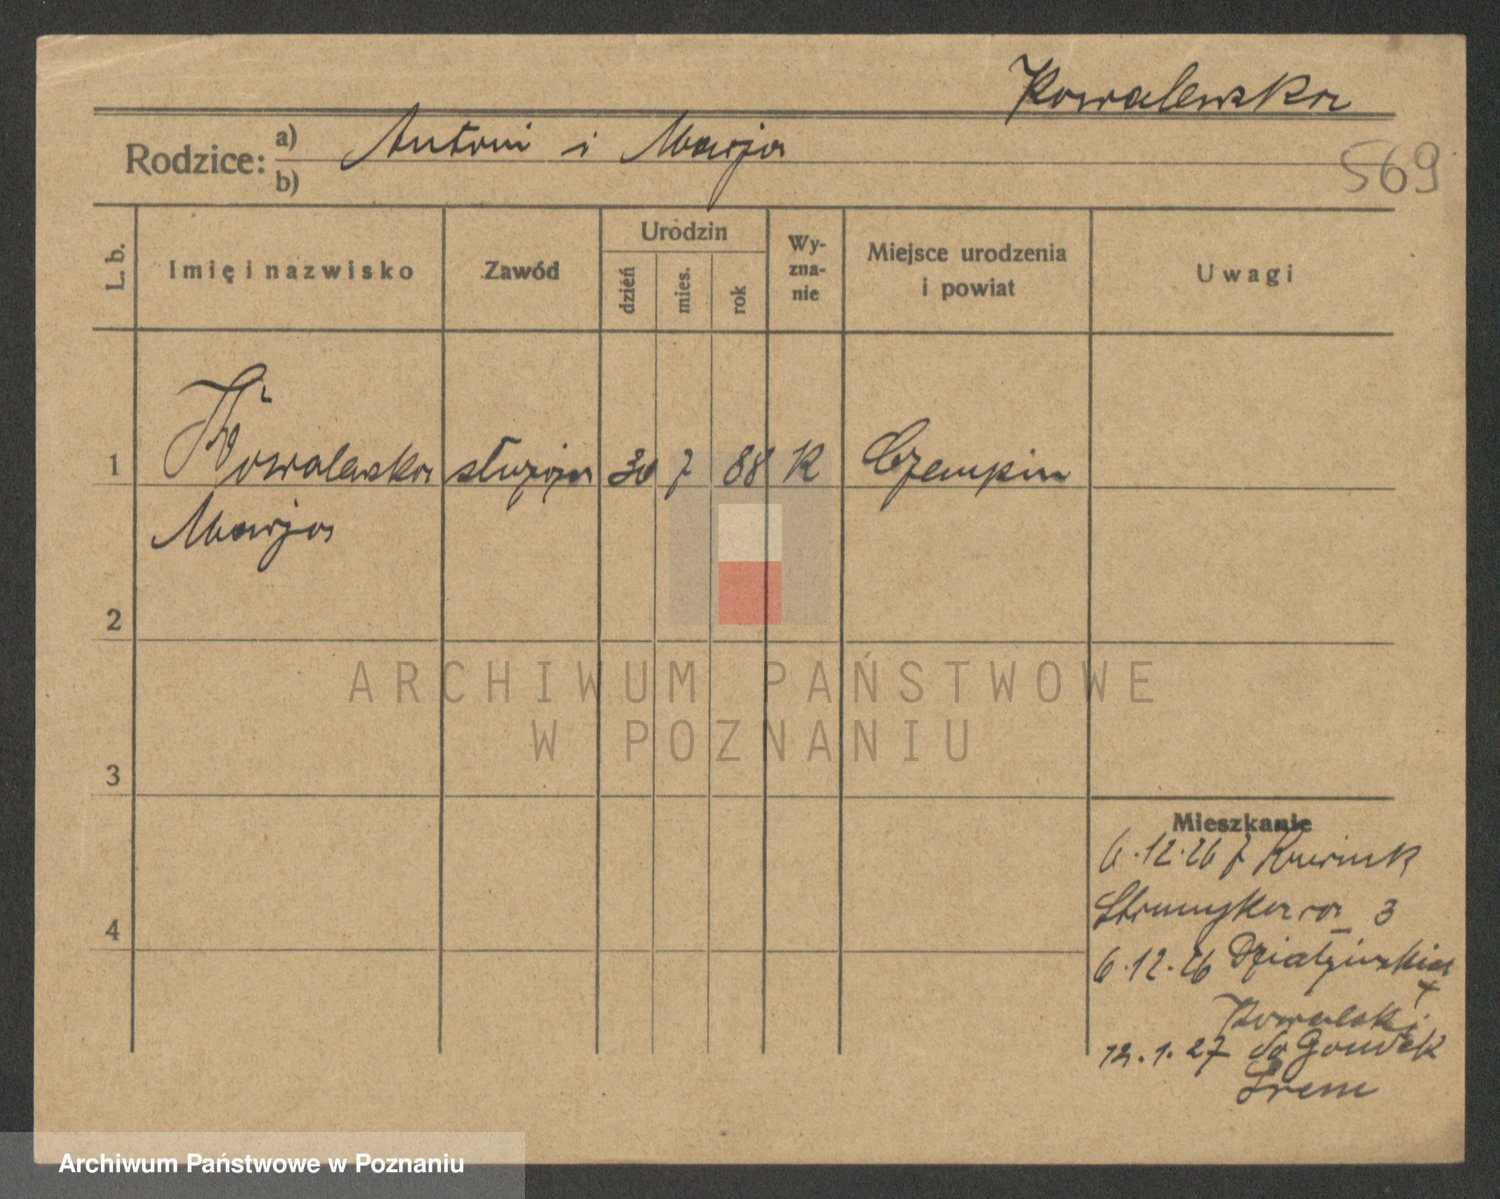 Kowalewska
Rodzice: a) Antoni i Marja
b)
569
L. b.
Imię i nazwisko
Zawód
Urodzin
dzień
mies.
rok
Wy-
zna-
nie
Miejsce urodzenia
i powiat
Uwagi
1 Kowalewska służąca 30 7 88 K Czempin
Marja
2
3
4
Mieszkanie
6.12.26 z
3
6.12.26
Kowalski
12.1.27 do
Śrem
ARCHIWUM PAŃSTWOWE
W POZNANIU
Archiwum Państwowe w Poznaniu